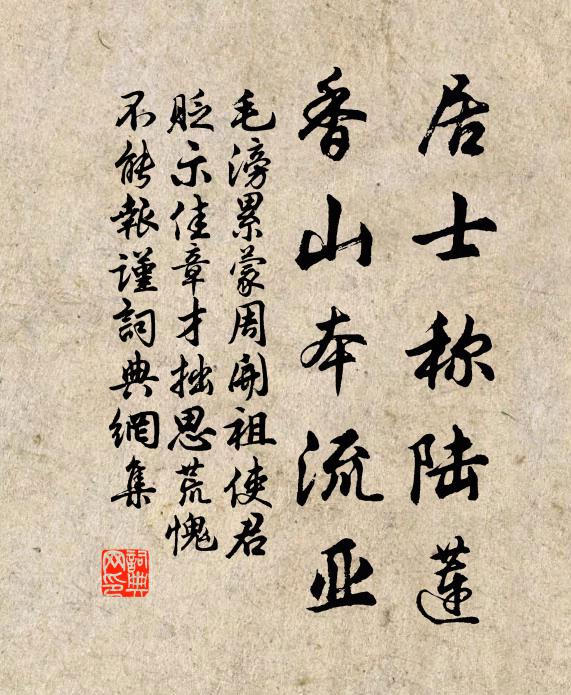 居士称陆莲
香山本流亚
毛滂累蒙周開祖使君
貶示佳章才拙思荒愧
不能報謹詞典網集
詞典
网印